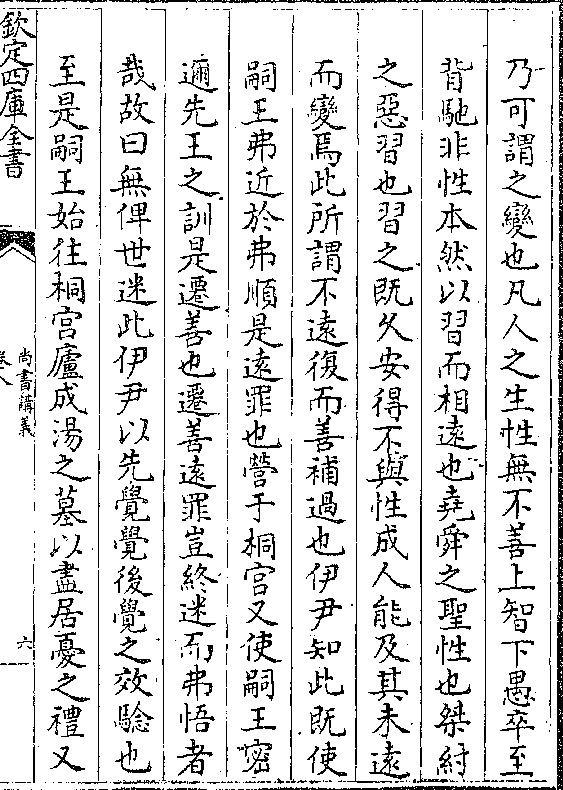 乃可謂之變也凡人之生性無不善上智下愚卒至
背馳非性本然以習而相遠也堯舜之聖性也桀紂
之惡習也習之既久安得不與性成人能及其未遠
而變焉此所謂不遠復而善補過也伊尹知此既使
嗣王弗近於弗順是遠罪也營于桐宮又使嗣王密
邇先王之訓是遷善也遷善遠罪豈終迷而弗悟者
哉故曰無俾世迷此伊尹以先覺覺後覺之效驗也
至是嗣王始往桐宮廬成湯之墓以盡居憂之禮又
欽定四庫全書
尚書講義
卷八
六